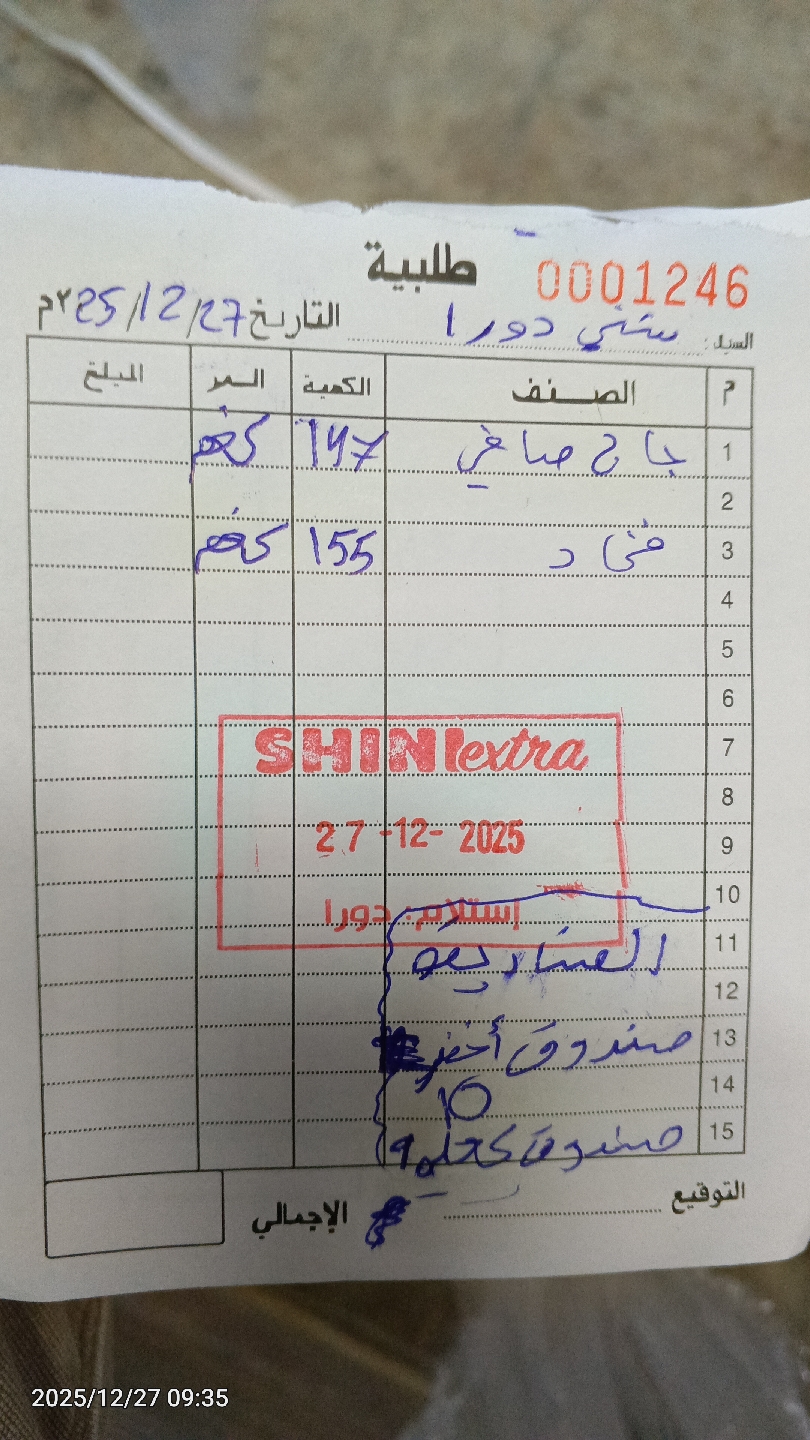 طلبية
0001246
السيد: شني دورا التاريخ 25/12/27 ٢م
م الصنف الكمية السعر المبلغ
1 جاج صافي 147 كغم
2
3 155 كغم
4
5
6
7
8
9
10
11
12
13 صندوق أخضر
10
14
15 صندوق كحلي 9
SHINIextra
27-12-2025
إستلام: دورا
التوقيع الإجمالي
2025/12/27 09:35